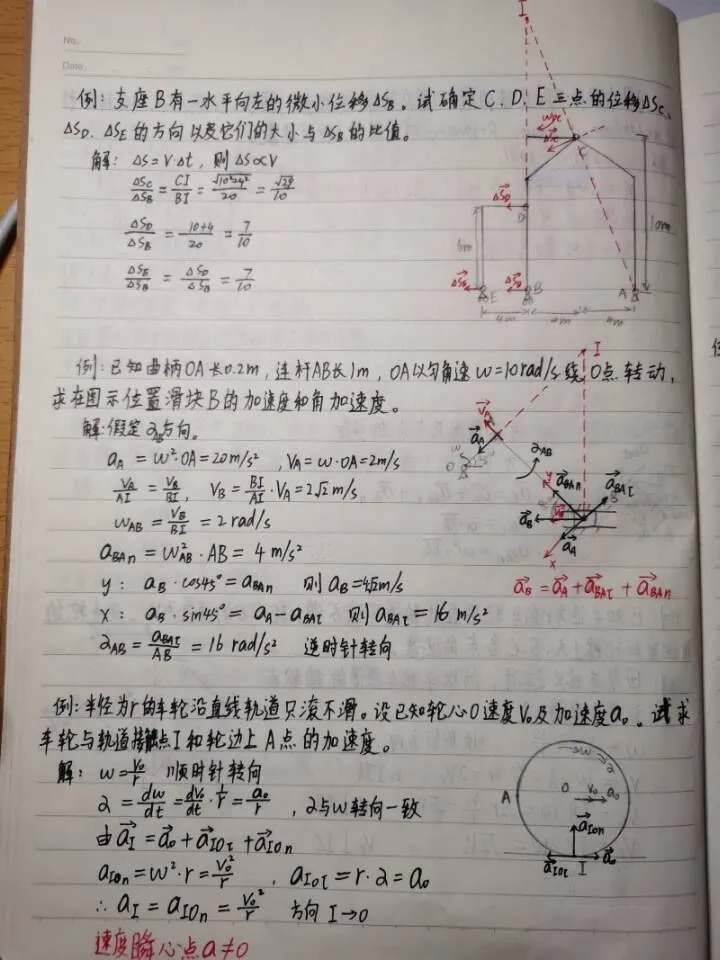 No.
Date.
例:支座B有一水平向左的微小位移ΔS_B。试确定C、D、E三点的位移ΔS_C、
ΔS_D、ΔS_E的方向以及它们的大小与ΔS_B的比值。
解:ΔS=V·Δt,则ΔS∝V
ΔS_C/ΔS_B = CI/BI = /20 = √29/10
ΔS_D/ΔS_B = 10+4/20 = 7/10
ΔS_E/ΔS_B = ΔS_D/ΔS_B = 7/10
I
ΔS_D
D
6m
10m
E
B
A
4m
4m
4m
例:已知曲柄OA长0.2m,连杆AB长1m,OA以匀角速ω=10rad/s绕O点转动,
求在图示位置滑块B的加速度和角加速度。
解:假定α_AB方向。
a_A = ω²·OA=20m/s²,V_A=ω·OA=2m/s
V_A/AI = V_B/BI, V_B = BI/AI·V_A=2√2m/s,
ω_AB = V_B/BI = 2rad/s
a_BAn = ω²_AB·AB = 4m/s²
y: a_B·cos45°=a_BAn 则a_B=4√2m/s
x: a_B·sin45°= a_A-a_BAτ 则a_BAτ=16m/s²
α_AB=a_BAτ/AB=16 rad/s² 逆时针转向
I
V_A
a_A
α_AB
y
a_BAn
a_BAτ
a_B
V_B
a_A
x
a_B=a_A+a_BAτ+a_BAn
例:半径为r的车轮沿直线轨道只滚不滑。设已知轮心O速度V₀及加速度a₀。试求
车轮与轨道接触点I和轮边上A点的加速度。
解: ω=V₀/r 顺时针转向
α=dω/dt=dV₀/dt·1/r=a₀/r ,α与ω转向一致
由a_I=a₀+a_IOτ+a_IOn
a_IOn=ω²·r=V₀²/r, a_IOτ=r·α=a₀
∴ a_I=a_IOn=V₀²/r 方向I→O
速度瞬心点a≠0
A
O
V₀
a₀
a_IOn
a_IOτ
I
a₀